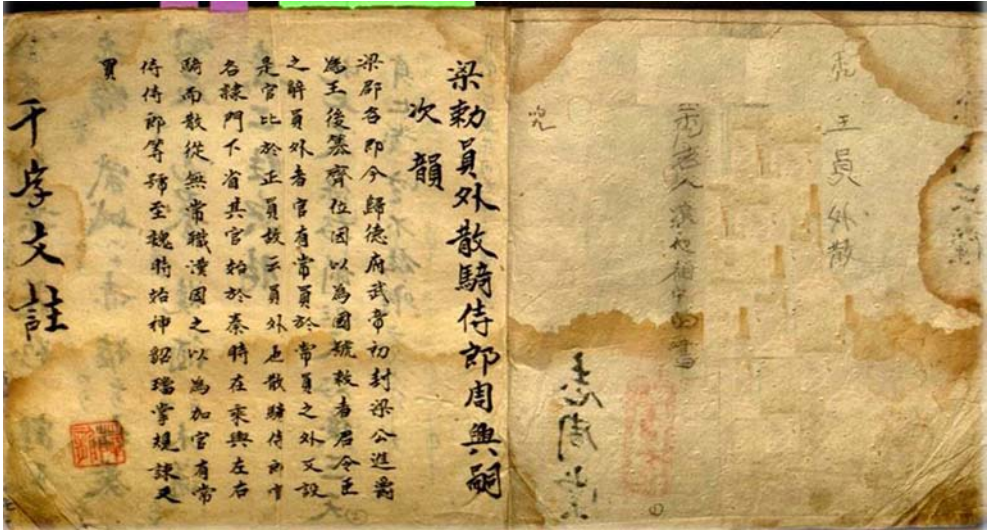 王員外散
梁勅員外散騎侍郎周興嗣
次韻
梁郡名即今歸德府武帝初封梁公進爵
為王後篡齊位因以為國號敕者君令臣
之辭員外者官有常員於常員之外又設
是官比於正員故云員外也散騎侍郎官
名隸門下省其官始於秦時在乘輿左右
騎而散從無常職漢因之以為加官有常
侍侍郎等號至魏時始神貂璫掌規諫又
買
千字文註